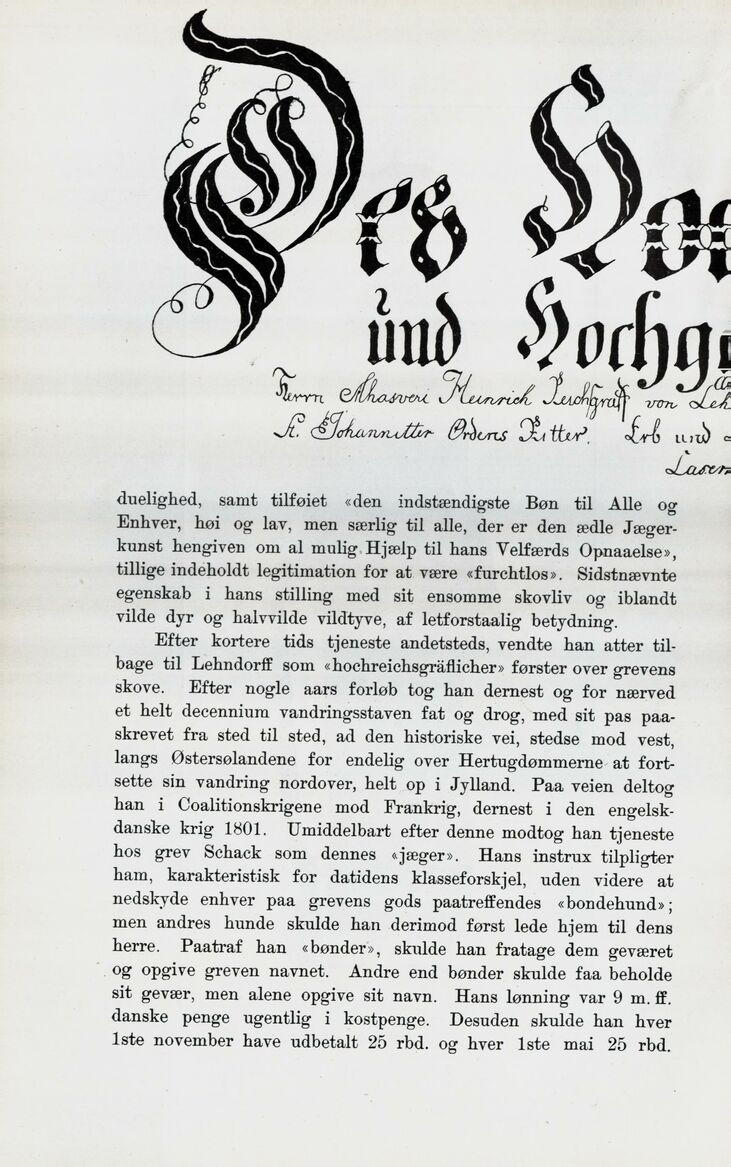 Des Hoc
und Hochge
Herrn Ahasveri Heinrich Reichgraff von Leh
St. Johannitter Ordens Ritter. Erb und
duelighed, samt tilføiet «den indstændigste Bøn til Alle og
Enhver, høi og lav, men særlig til alle, der er den ædle Jæger-
kunst hengiven om al mulig Hjælp til hans Velfærds Opnaaelse»,
tillige indeholdt legitimation for at være «furchtlos». Sidstnævnte
egenskab i hans stilling med sit ensomme skovliv og iblandt
vilde dyr og halvvilde vildtyve, af letforstaalig betydning.
Efter kortere tids tjeneste andetsteds, vendte han atter til-
bage til Lehndorff som «hochreichsgräflicher» førster over grevens
skove. Efter nogle aars forløb tog han dernest og for nærved
et helt decennium vandringsstaven fat og drog, med sit pas paa-
skrevet fra sted til sted, ad den historiske vei, stedse mod vest,
langs Østersølandene for endelig over Hertugdømmerne at fort-
sette sin vandring nordover, helt op i Jylland. Paa veien deltog
han i Coalitionskrigene mod Frankrig, dernest i den engelsk-
danske krig 1801. Umiddelbart efter denne modtog han tjeneste
hos grev Schack som dennes «jæger». Hans instrux tilpligter
ham, karakteristisk for datidens klasseforskjel, uden videre at
nedskyde enhver paa grevens gods paatreffendes «bondehund»;
men andres hunde skulde han derimod først lede hjem til dens
herre. Paatraf han «bønder», skulde han fratage dem geværet
og opgive greven navnet. Andre end bønder skulde faa beholde
sit gevær, men alene opgive sit navn. Hans lønning var 9 m. ff.
danske penge ugentlig i kostpenge. Desuden skulde han hver
1ste november have udbetalt 25 rbd. og hver 1ste mai 25 rbd.